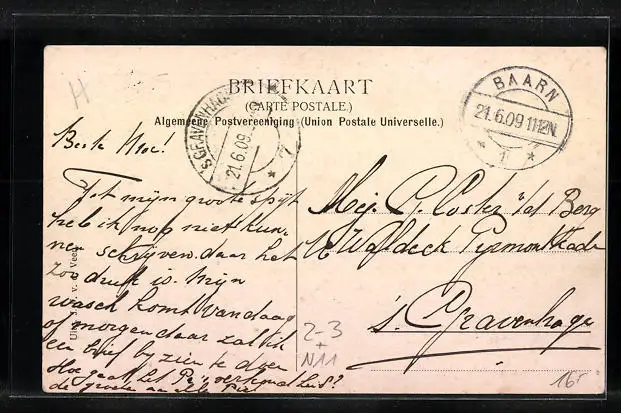 H
BRIEFKAART
(CARTE POSTALE.)
Algemeene Postvereeniging (Union Postale Universelle.)
'S GRAVENHAGE
21.6.09
* 7
BAARN
21.6.09 11-12N
* 1 *
Beste Moe!
Tot mijn groote spijt
heb ik nog niet kun-
nen schrijven, daar het
zoo druk is. Mijn
wasch komt vandaag
of morgen daar zal ik
een brief bij zien te doen
Hoe gaat het Pa's verkoudheid?
de groeten aan allen
Mej. P. Coster v/d Berg
16 Waldeck Pyrmontkade
's Gravenhage
2-3
+
N11
16-